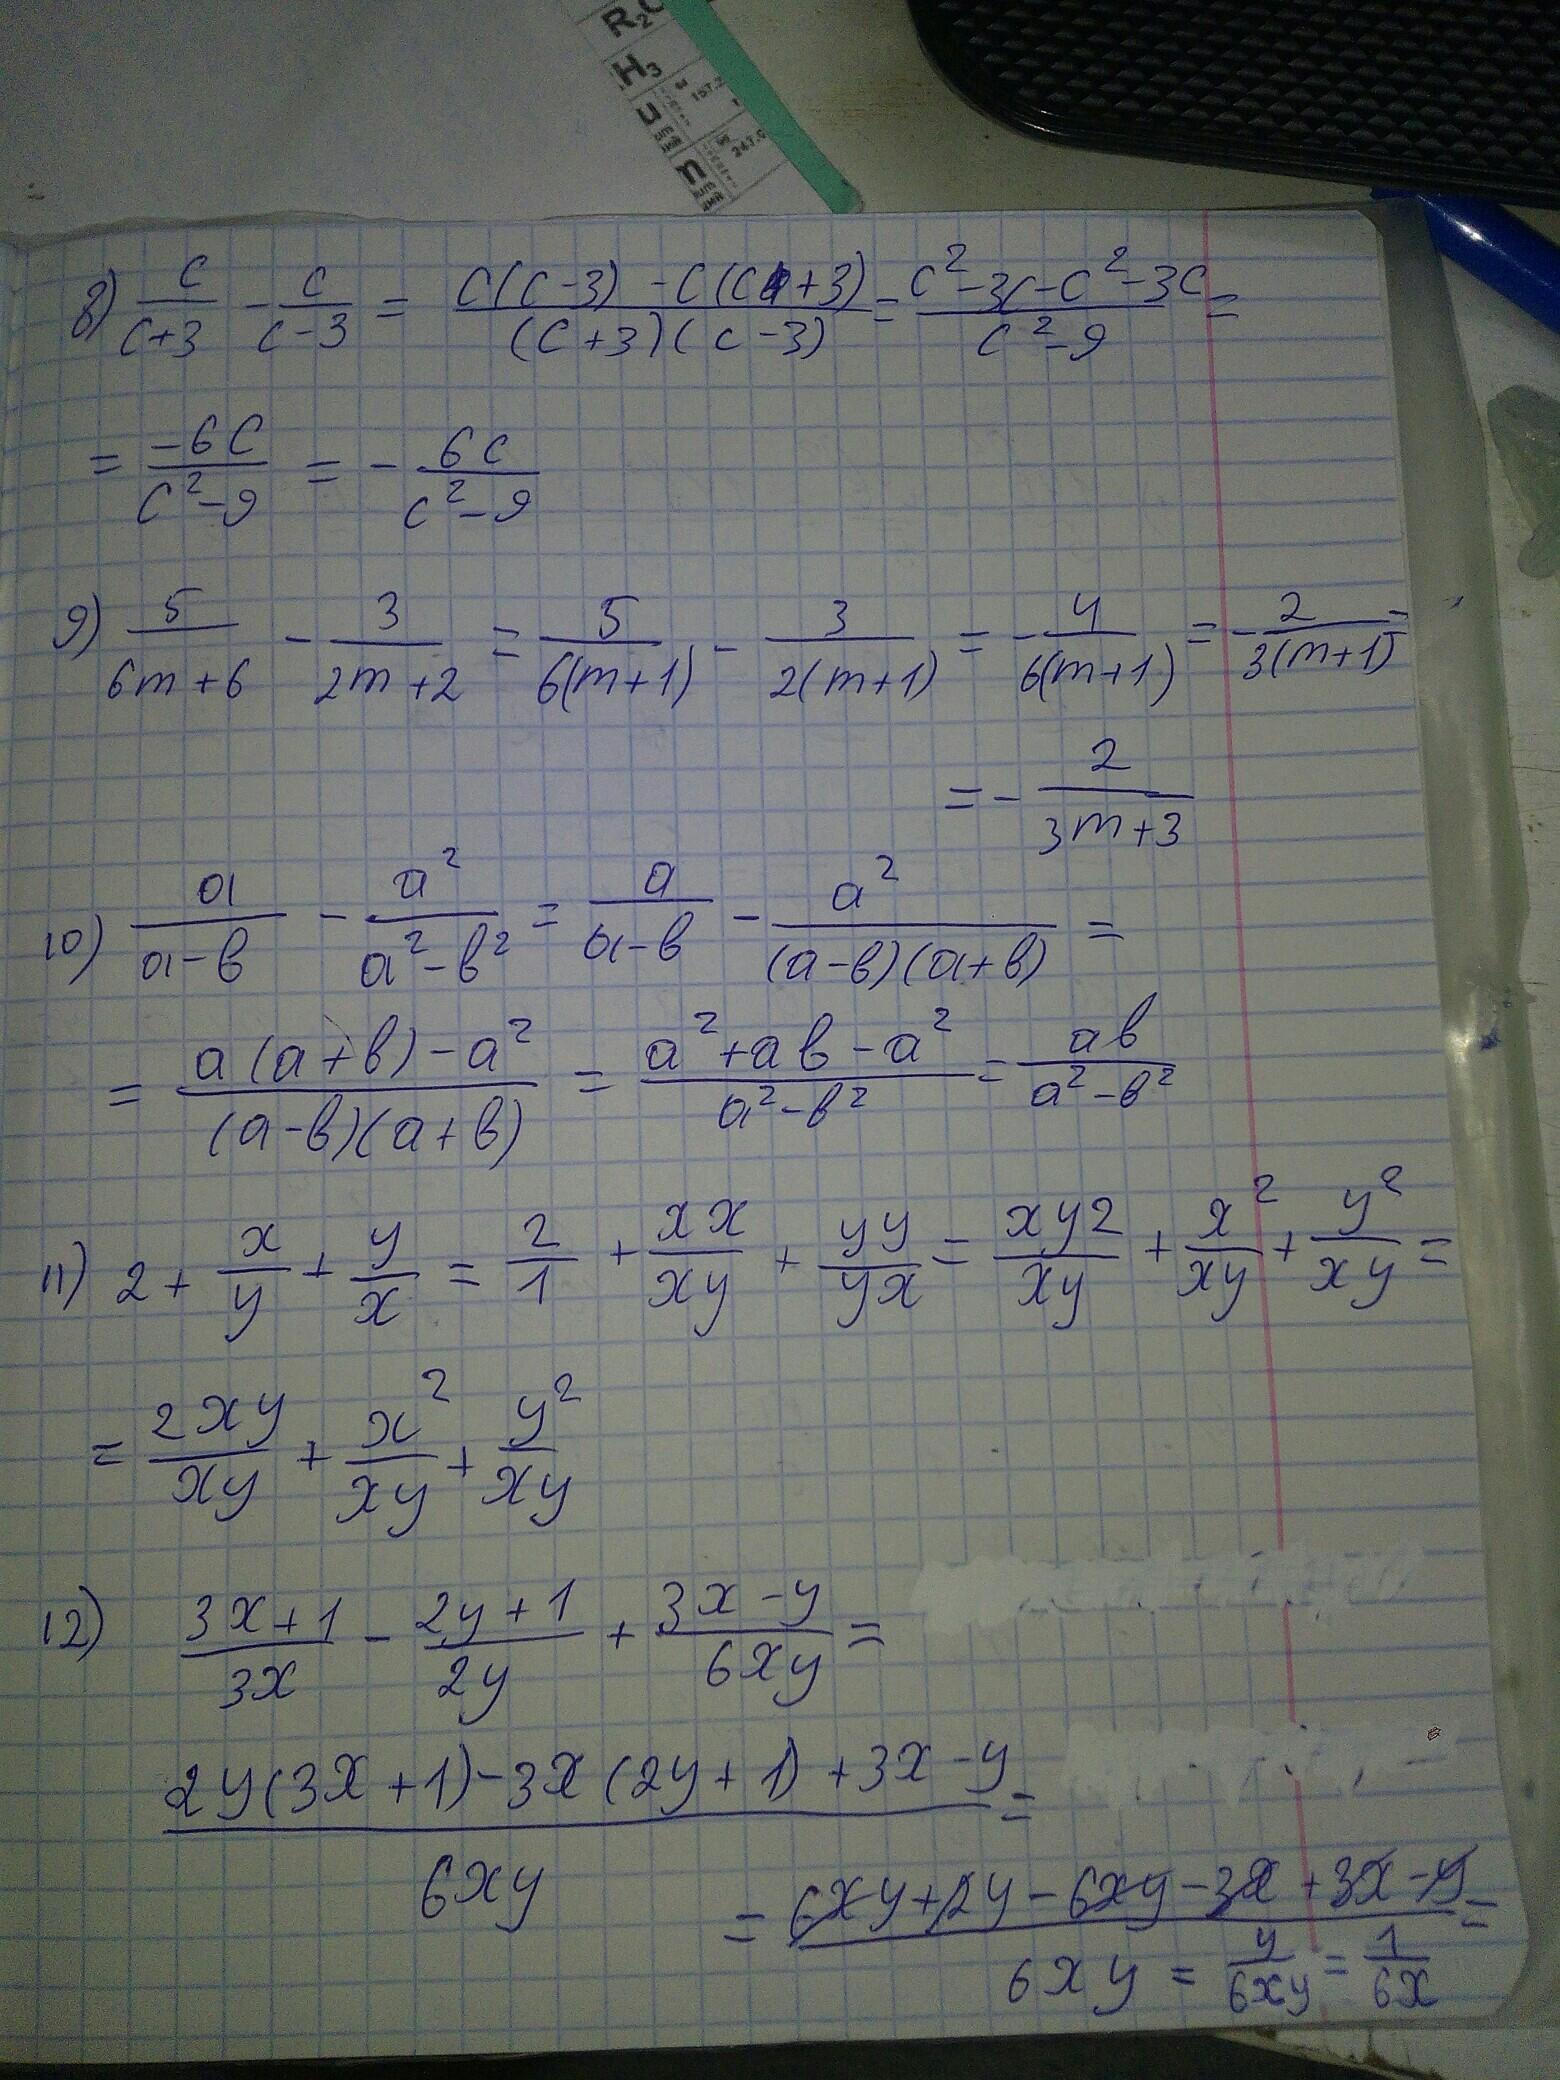 R₂O
H₃
157.2
247.0
8) c/(c+3) - c/(c-3) = (c(c-3) - c(c+3))/((c+3)(c-3)) = (c²-3c-c²-3c)/(c²-9) =
= -6c/(c²-9) = - 6c/(c²-9)
9) 5/(6m+6) - 3/(2m+2) = 5/(6(m+1)) - 3/(2(m+1)) = - 4/(6(m+1)) = - 2/(3(m+1)) =
= - 2/(3m+3)
10) a/(a-b) - a²/(a²-b²) = a/(a-b) - a²/((a-b)(a+b)) =
= (a(a+b)-a²)/((a-b)(a+b)) = (a²+ab-a²)/(a²-b²) = ab/(a²-b²)
11) 2 + x/y + y/x = 2/1 + xx/xy + yy/yx = xy2/xy + x²/xy + y²/xy =
= 2xy/xy + x²/xy + y²/xy
12) (3x+1)/3x - (2y+1)/2y + (3x-y)/6xy =
(2y(3x+1)-3x(2y+1)+3x-y)/6xy =
= (6xy+2y-6xy-3x+3x-y)/6xy = y/6xy = 1/6x